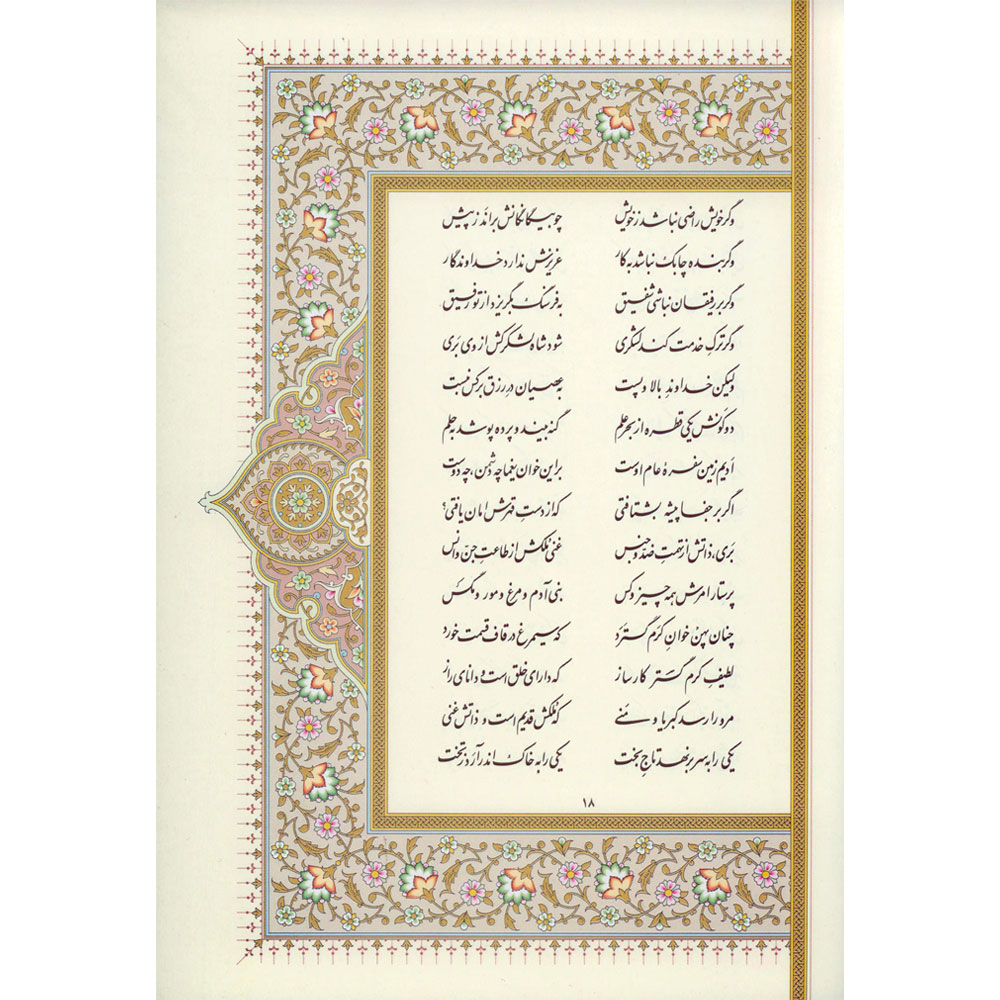 وگر خویش راضی نباشد ز خویش چو بیگانگانش براند ز پیش
وگر بنده چابک نباشد به کار عزیزش ندارد خداوندگار
وگر بر رفیقان نباشی شفیق به فرسنگ بگریزد از تو رفیق
وگر ترکِ خدمت کند لشکری شود شاه لشکرکش از وی بَری
ولیکن خداوندِ بالا و پست به عصیان درِ رزق بر کس نبست
دو کونش یکی قطره از بحرِ علم گنه بیند و پرده پوشد به حلم
اَدیم زمین سفرهٔ عام اوست بر این خوان یغما چه دشمن، چه دوست
اگر بر جفا پیشه بشتافتی که از دستِ قهرش امان یافتی؟
بَری، ذاتش از تهمتِ ضدّ و جنس غنی مُلکش از طاعتِ جنّ و انس
پرستار امرش همه چیز و کس بنی آدم و مرغ و مور و مگس
چنان پهن خوانِ کَرَم گُستَرَد که سیمرغ در قاف قسمت خورد
لطیفِ کرم گستر کارساز که دارای خلق است و دانای راز
مرو را رسد کبریا و مَنی که مُلکش قدیم است و ذاتش غنی
یکی را به سر برنهد تاجِ بخت یکی را به خاک اندر آرَد ز تخت
۱۸